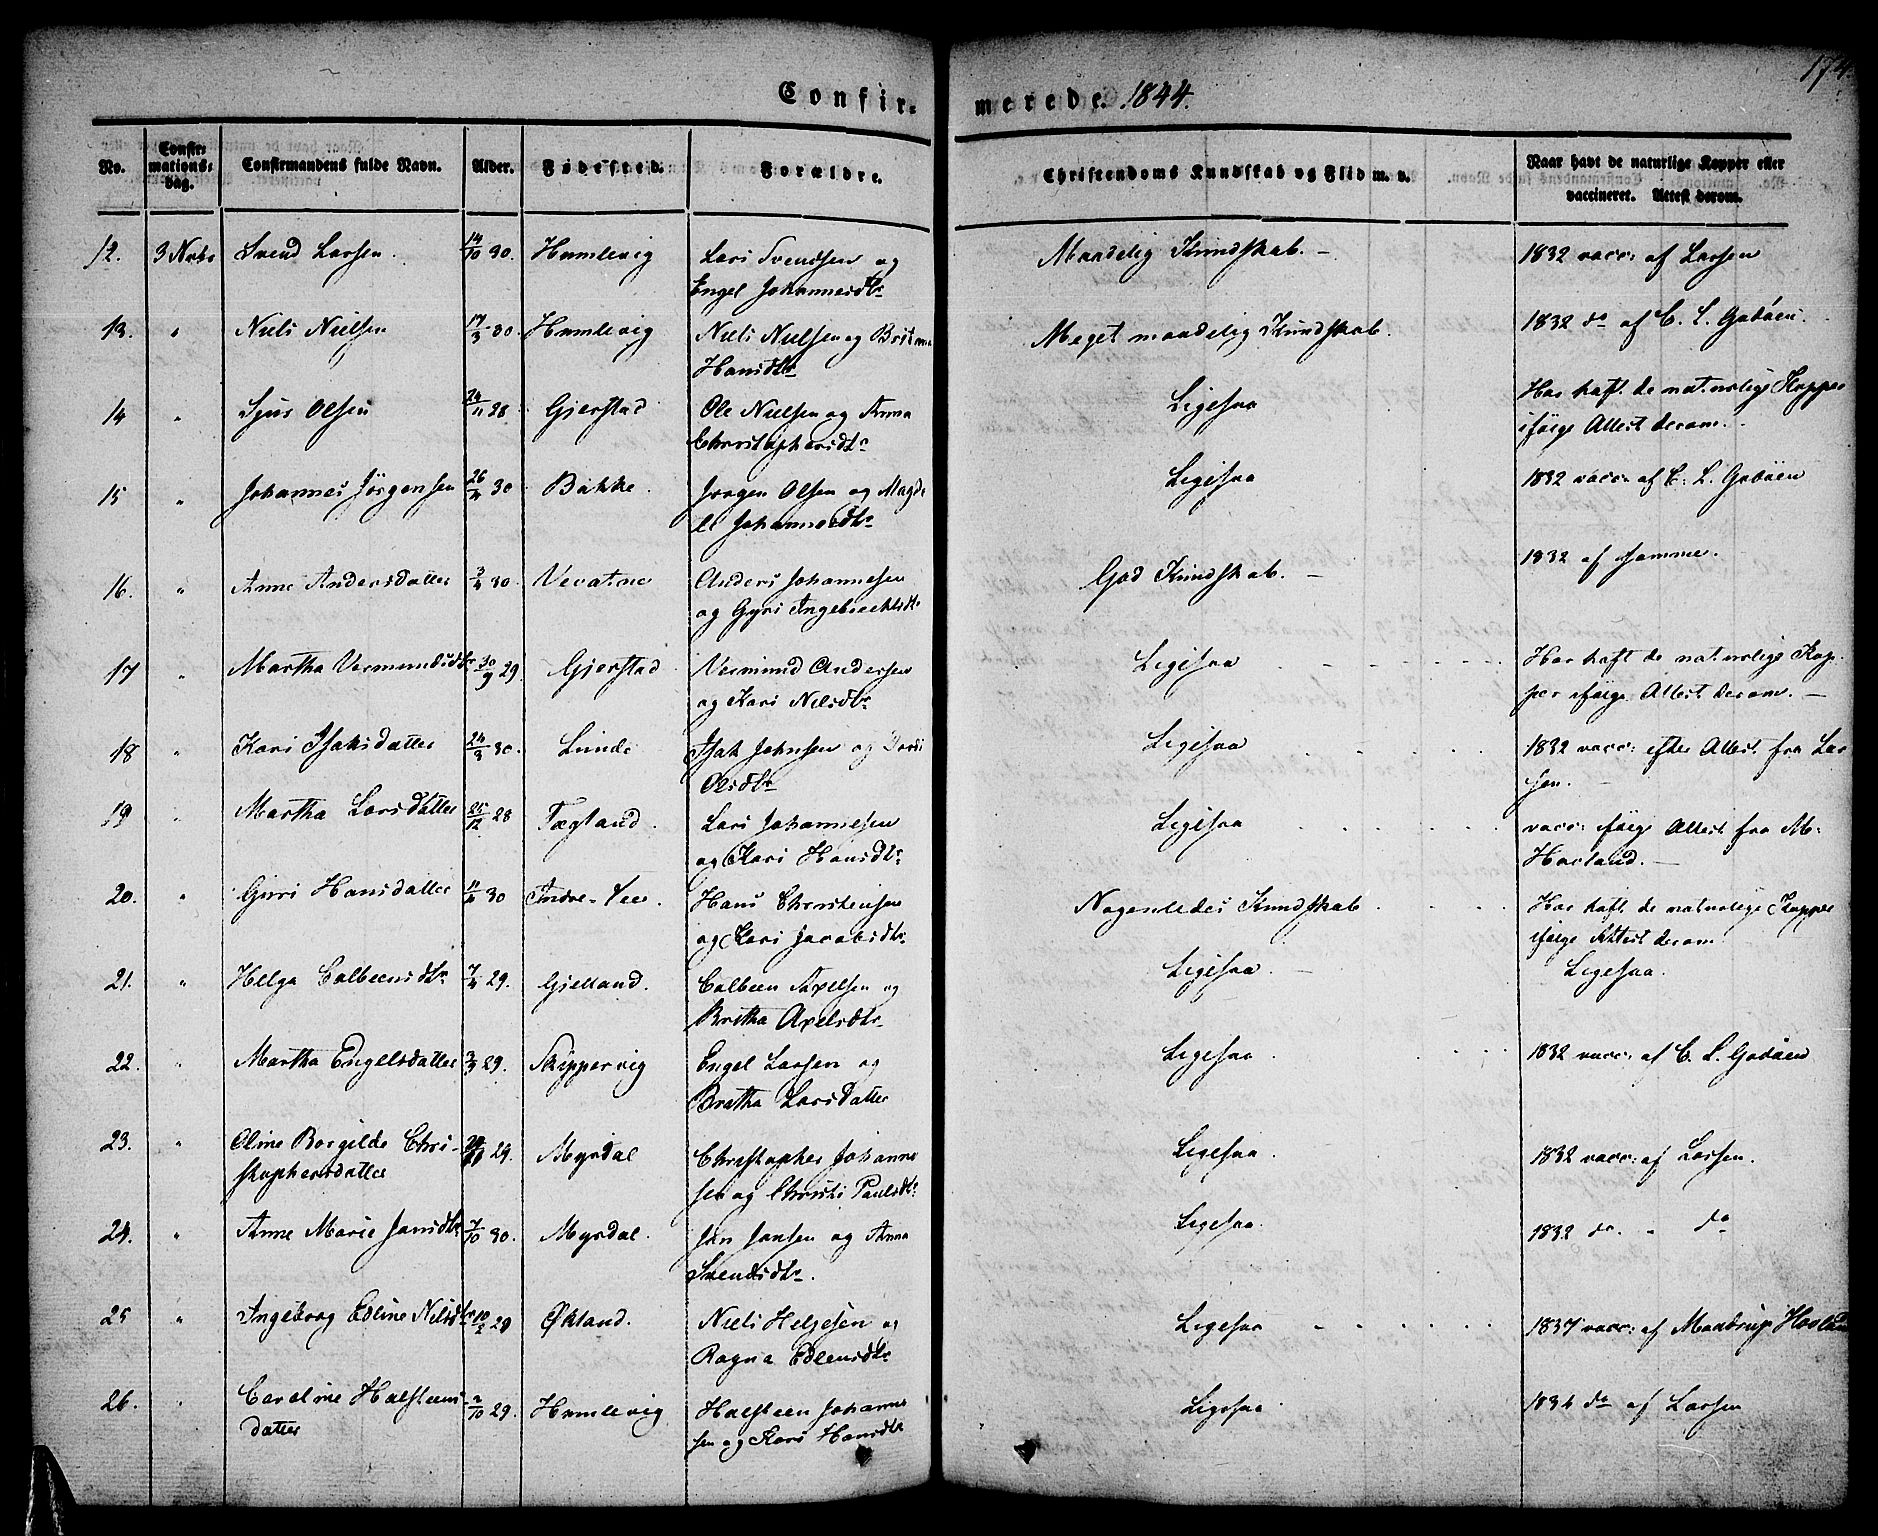 174.
Confirmerede. 1844.
No. Confirmationsdag. Confirmandens fulde Navn. Alder. Fødested. Forældre. Christendoms Kundskab og Flid m. v. Naar havt de naturlige Kopper eller vaccineret. Attest derom.
12. 3 Novbr Svend Larsen. 14/10 30. Humlevig Lars Svendsen og Maadelig Kundskab. – 1832 vacc: af Larsen
Engel Johannesdtr
13. " Niels Nielsen 17/3 30. Humlevig Niels Nielsen og Meget maadelig Kundskab. 1832 do af C. L. Godøen.
Hansdtr
14 " Sjur Olsen 24/11 28 Gjerstad Ole Nielsen og Anna Ligesaa Har haft de naturlige Kopper
Christophersdtr ifølge Attest derom.
15 " Johannes Jørgensen 26/4 30 Bakke. Jørgen Olsen og Magde Ligesaa 1832 vacc: af C. L. Godøen
li Johannesdtr
16. " Anne Andersdatter 3/4 30. Veratne Anders Johannesen God Kundskab. – 1832 af samme.
og Gyri Ingebrechtsdtr
17 " Martha Vermundsdtr 30/9 29. Gjerstad Vermund Andersen Ligesaa Har haft de naturlige Kop-
og Kari Nilsdtr per ifølge Attest derom. –
18 " Kari Isaksdatter 24/3 30. Lunde Isak Johnsen og Ligesaa 1832 vacc: efter Attest fra Lar
Olsdtr sen. –
19 " Martha Larsdatter 25/12 28 Tægland. Lars Johannesen Ligesaa vacc: ifølge Attest fra M:
og Kari Hansdtr Havland. –
20. " Guri Hansdatter 11/4 30 Indre- Hans Christensen Nogenledes Kundskab. Har haft de naturlige Kopper
og Kari Jacobsdtr ifølge Attest derom
21. " Helga Colbeensdtr 7/4 29. Gjelland. Colbeen Axelsen og Ligesaa. – Ligesaa.
Britha Axelsdtr
22. " Martha Engelsdatter 3/3 29. Skippervig Engel Larsen og Ligesaa 1832 vacc: af C. L. Godøen
Britha Larsdatter
23. " Oline Borgilde Chri- 29. Myrdal Christopher Johanne Ligesaa 1832 vacc: af Larsen.
stophersdatter sen og Christi Paulsdtr
24. " Anne Marie Jansdtr 7/10 30. Myrdal. Jan Jansen og Anna Ligesaa. 1832 do. " do
Svendsdtr.
25 " Ingeborg Edline Nilsdtr 10/2 29 Økland. Niels Helgesen og Ligesaa 1837 vacc: af Mandrup Havland
Ragna Edlensdtr
26. " Caroline Halsteens 2/10 29. Humlevig Halsteen Johanne Ligesaa 1834 do af Larsen
datter sen og Kari Hansdtr